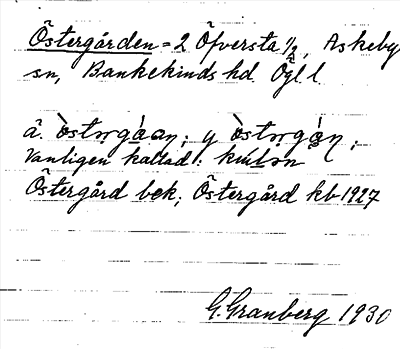 Östergården = 2 Öfversta 1/2, Askeby
sn, Bankekinds hd Ögl l
ä. òstərgá̀ən; y òstərgá̀n;
Vanligen kallad:
Östergård bek; Östergård kb 1927
G. Granberg 1930